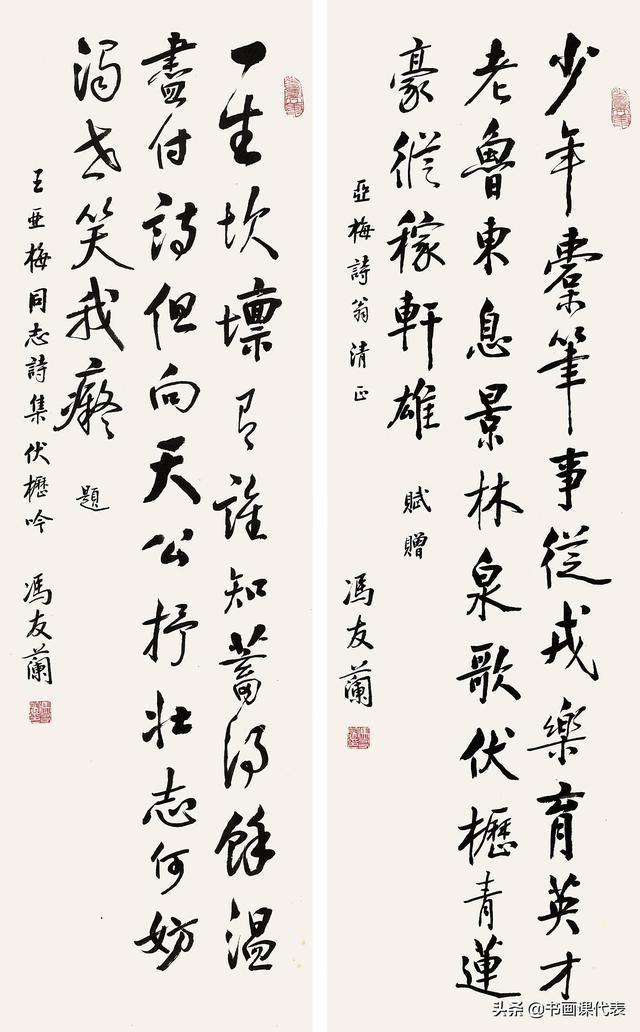 少年橐筆事從戎樂育英才
老魯東息景林泉歌伏櫪青蓮
豪縱稼軒雄 賦贈
亞梅詩翁清正 馮友蘭
一生坎壈有誰知蓄得餘溫
盡付詩但向天公抒壯志何妨
濁世笑我癡 題
王亞梅同志詩集伏櫪吟 馮友蘭
头条 @书画课代表